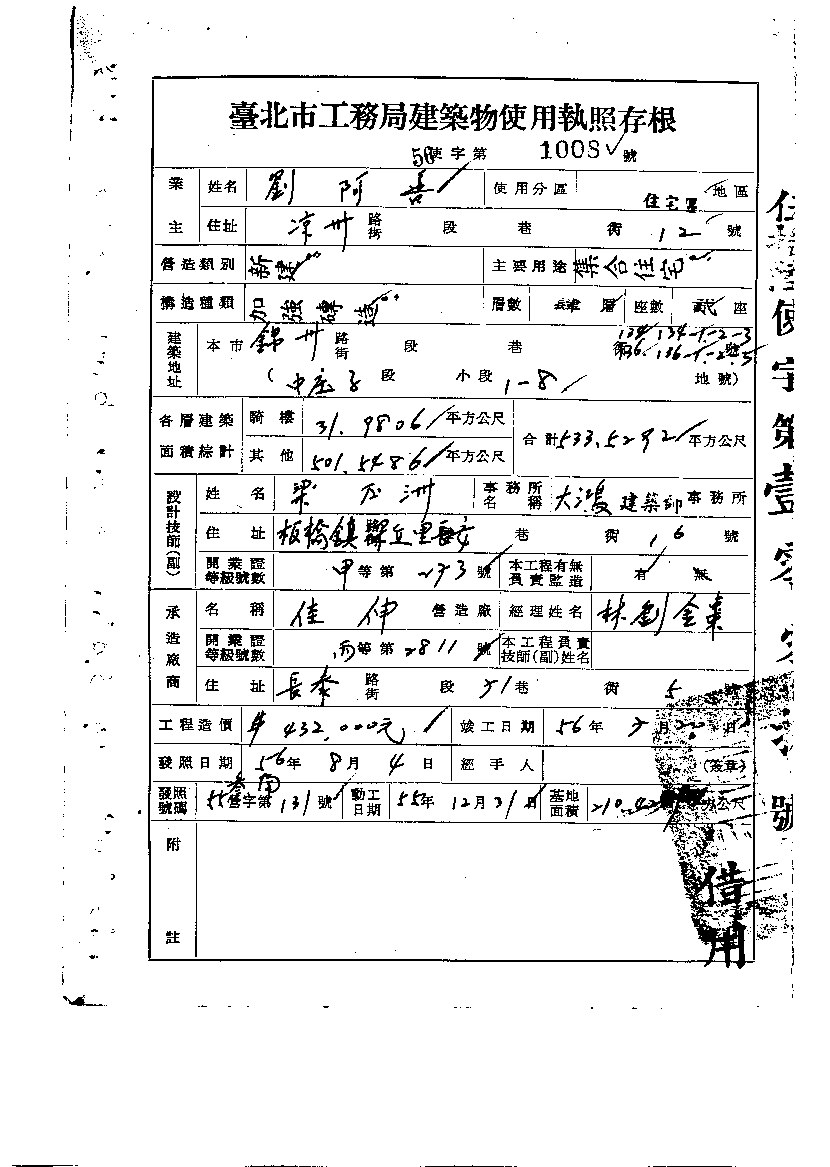 臺北市工務局建築物使用執照存根
56使字第 1008 號
業主 姓名 劉阿善 使用分區 住宅區 地區
住址 涼州 路街 段 巷 衖 12 號
營造類別 新建 主要用途 集合住宅
構造種類 加強磚造 層數 層 座數 貳 座
建築地址 本市 錦州 路街 段 巷 134,134-1-2-3 136,136-1-2-3 號
( 中庄子 段 小段 1-8 地號)
各層建築面積綜計 騎樓 31.9806 平方公尺 合計 533.5292 平方公尺
其他 501.5486 平方公尺
設計技師(副) 姓名 梁 洲 事務所名稱 大鴻 建築師 事務所
住址 板橋鎮 里長安 巷 衖 16 號
開業證等級號數 甲 等第 273 號 本工程有無負責監造 有 無
承造廠商 名稱 佳伸 營造廠 經理姓名 林劉金葉
開業證等級號數 丙 等第 2811 號 本工程負責技師(副)姓名
住址 長泰 路街 段 51 巷 衖 5 號
工程造價 432,000元 竣工日期 56年 5月 20日
發照日期 56年 8月 4日 經手人 (簽章)
發照號碼 55營字第 131 號 動工日期 55年 12月 31日 基地面積 210.42 平方公尺
附註
使字第壹零零 號
借用